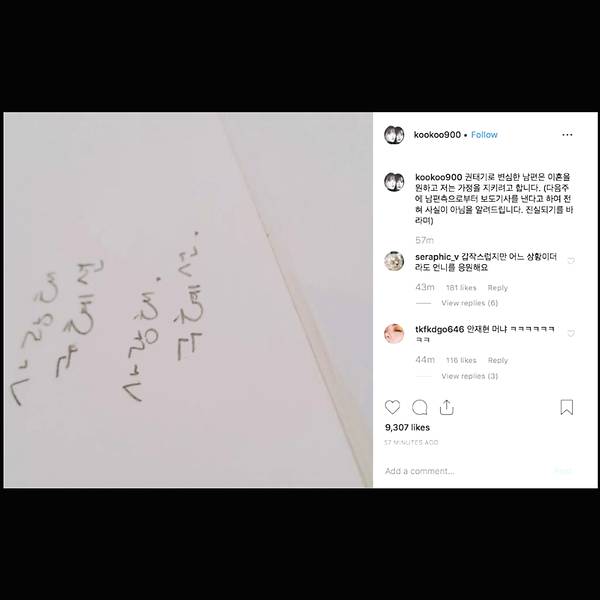 kookoo900 • Follow
kookoo900 권태기로 변심한 남편은 이혼을
원하고 저는 가정을 지키려고 합니다. (다음주
에 남편측으로부터 보도기사를 낸다고 하여 전
혀 사실이 아님을 알려드립니다. 진실되기를 바
라며)
57m
seraphic_v 갑작스럽지만 어느 상황이더
라도 언니를 응원해요
43m 181 likes Reply
View replies (6)
tkfkdgo646 안재현 머냐 ㅋㅋㅋㅋㅋㅋ
ㅋㅋ
44m 116 likes Reply
View replies (3)
9,307 likes
57 MINUTES AGO
Add a comment...
Post